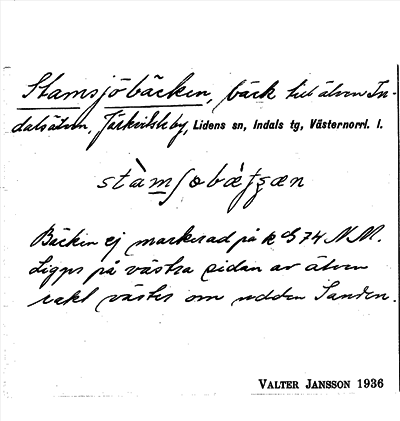 Stamsjöbäcken, bäck till älven In-
dalsälven, Järkvitsle by, Lidens sn, Indals tg, Västernorrl. l.
stàm̲ʃobæ̀tʂæn
Bäcken ej markerad på k G 74 NM.
Ligger på västra sidan av älven
rakt väster om udden Sanden.
VALTER JANSSON 1936